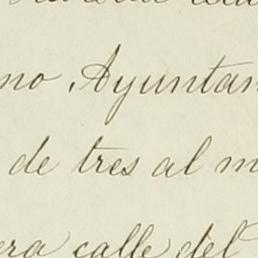 no Ayuntam
de tres al m
era calle del